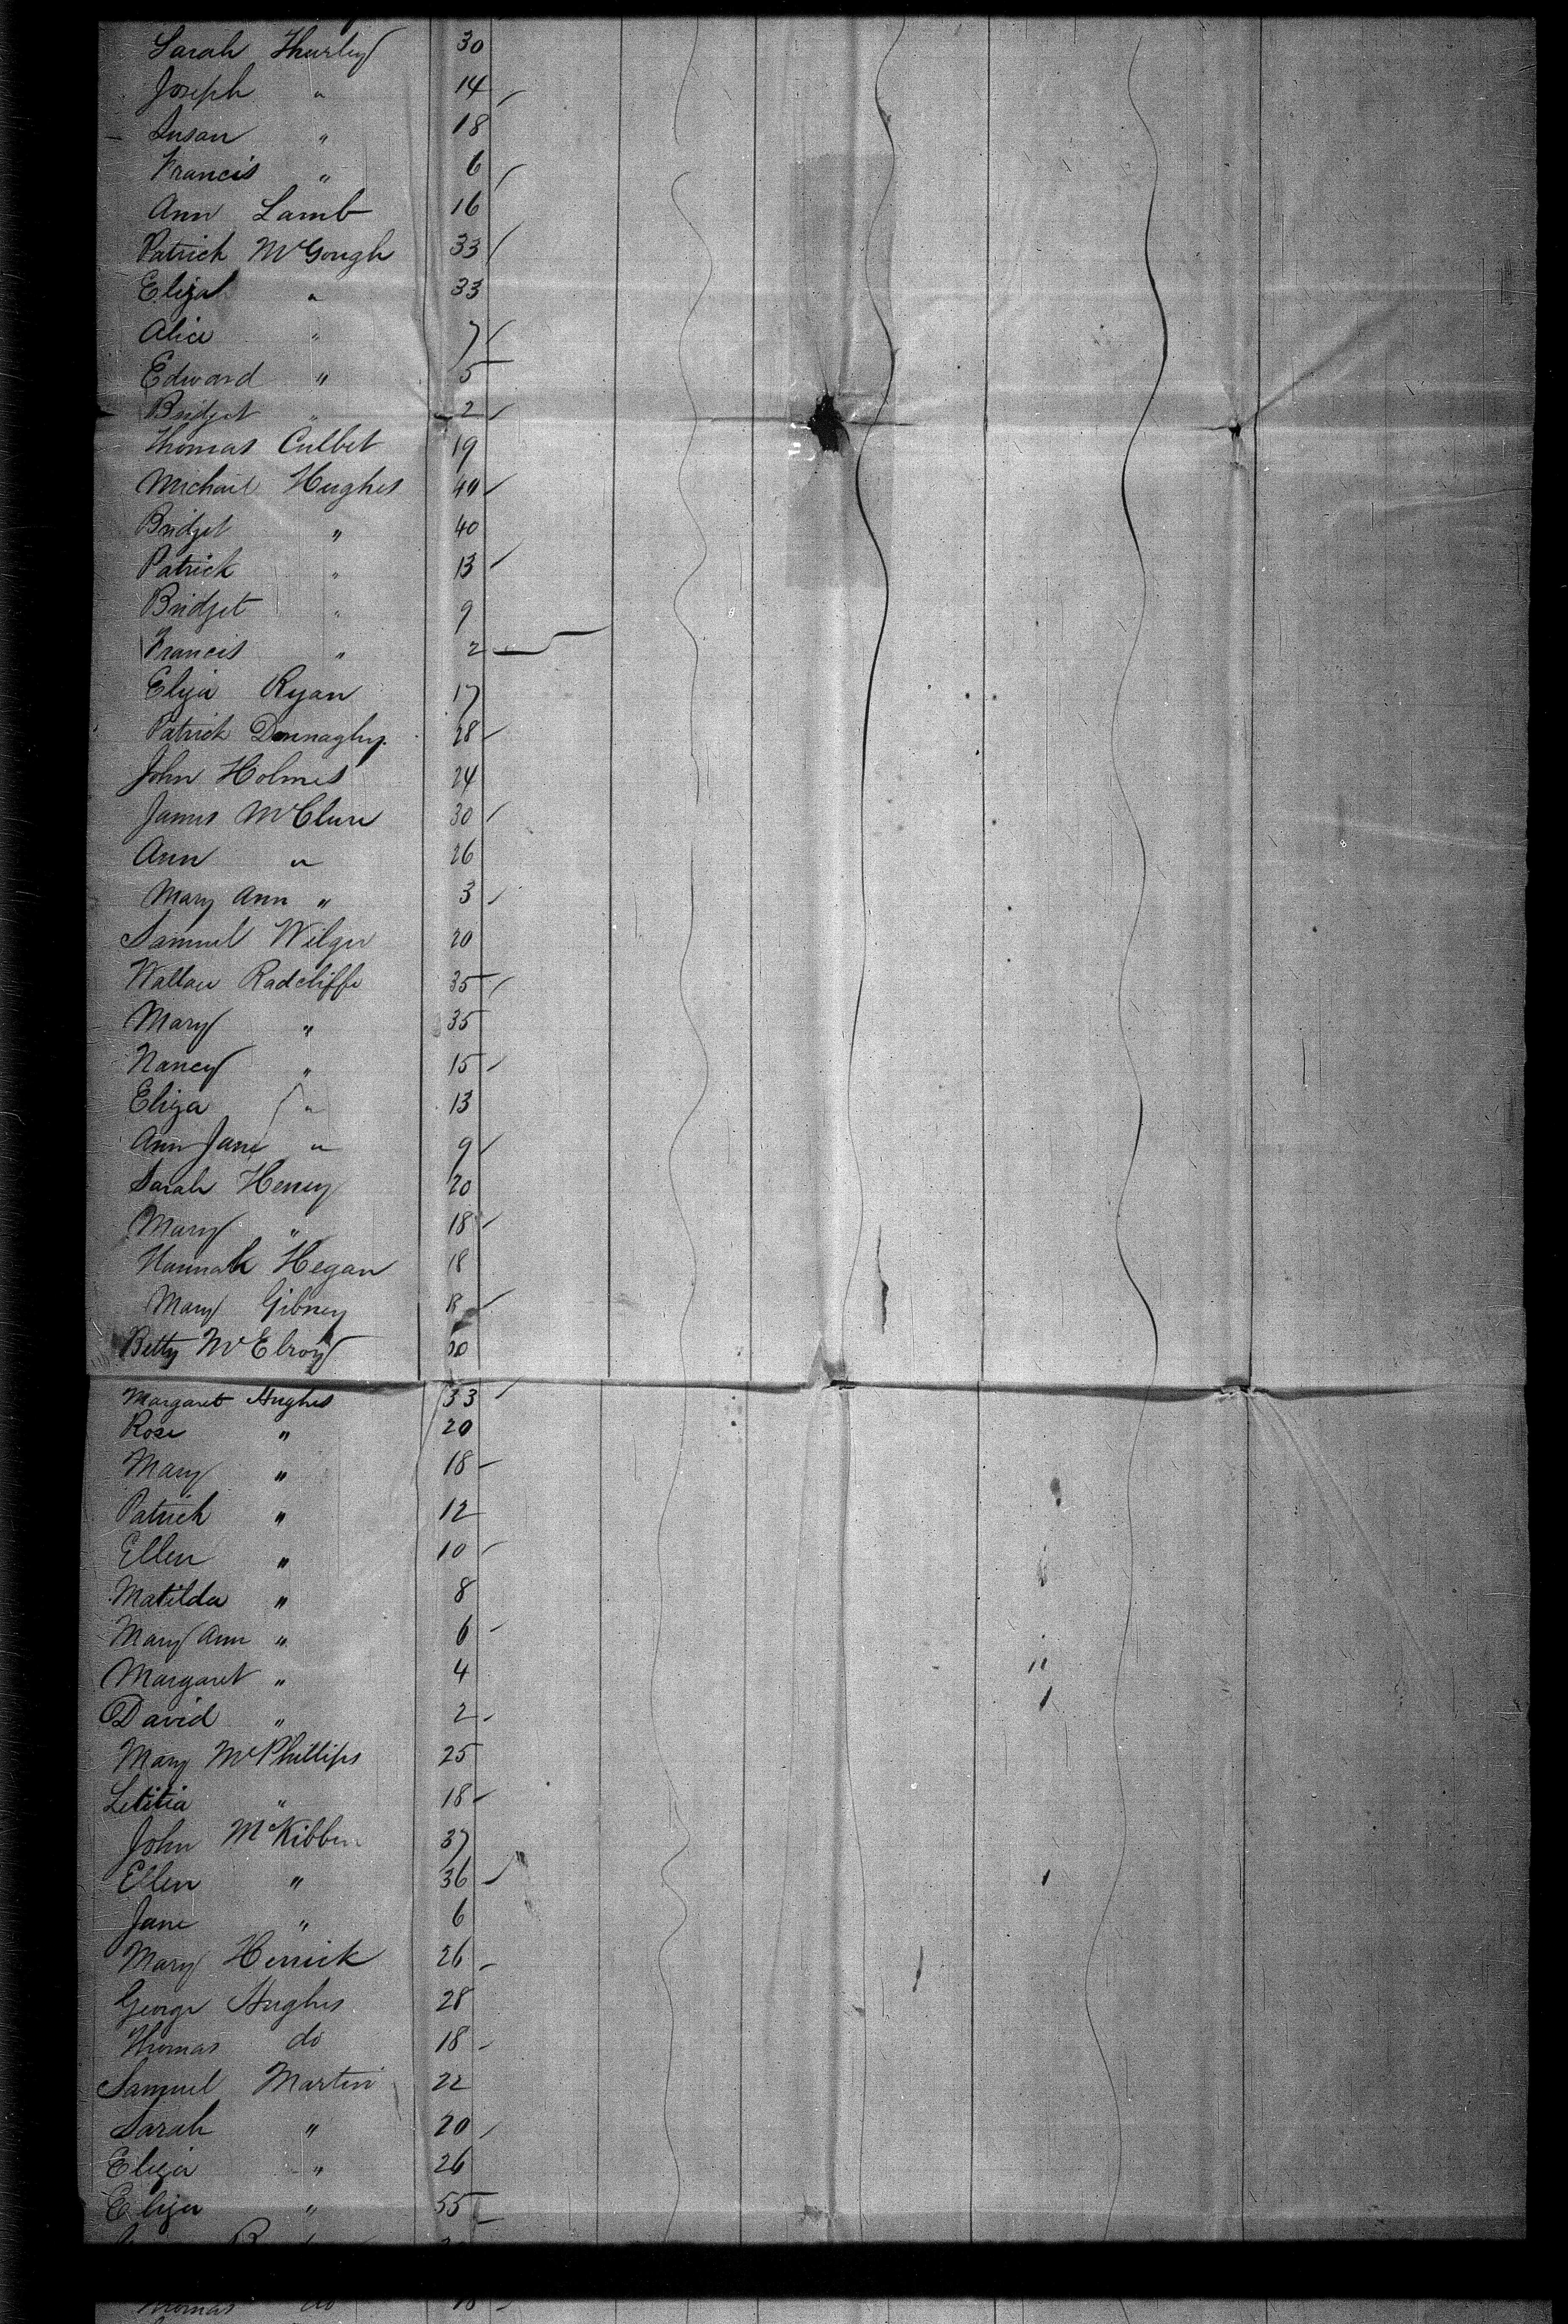 Sarah Thurley 30
Joseph " 14
Susan " 18
Francis " 6
Ann Lamb 16
Patrick McGough 33
Eliza " 33
Alice " 7
Edward " 5
Bridget " 2
Thomas Culbet 19
Michael Hughes 40
Bridget " 40
Patrick " 13
Bridget " 9
Francis " 2
Eliza Ryan 17
Patrick Donnaghy 28
John Holmes 24
James McClure 30
Ann " 26
Mary Ann " 3
Samuel 20
Wallace Radcliffe 35
Mary " 35
Nancy " 15
Eliza " 13
Ann Jane " 9
Sarah Heney 20
Mary " 18
Hannah Hegan 18
Mary Gibney
Betty McElroy
Margaret Hughes 33
Rose " 20
Mary " 18
Patrick " 12
Ellen " 10
Matilda " 8
Mary Ann " 6
Margaret " 4
David " 2
Mary McPhillips 25
Letitia " 18
John McKibben 37
Ellen " 36
Jane " 6
Mary Herrick 26
George Hughes 28
Thomas do 18
Samuel Martin 22
Sarah " 20
Eliza " 26
Eliza " 55
Thomas do 18